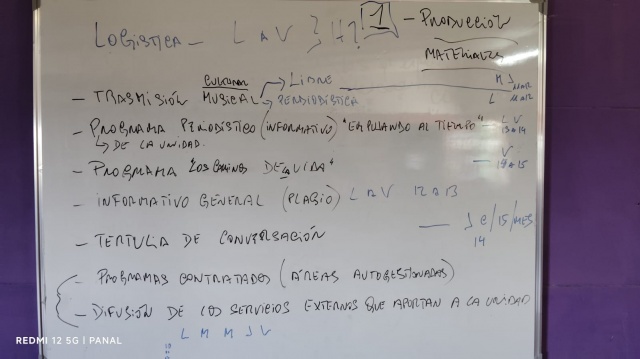 LOGÍSTICA — L a V } H? 1 — PRODUCCIÓN
MATERIALES
CULTURAL → LIBRE M J
— TRASMISIÓN MUSICAL → PERIODÍSTICA L
— PROGRAMA PERIODÍSTICO (INFORMATIVO) "EMPUJANDO AL TIEMPO" — L V
↳ DE LA UNIDAD. 13 a 14
— PROGRAMA "LOS CAMINOS DE LA VIDA" — V
15
— INFORMATIVO GENERAL (PLAGIO) L a V 12 a 13
— TERTULIA DE CONVERSACIÓN — J c/15/MES
14
— PROGRAMAS CONTRATADOS (ÁREAS AUTOGESTIONADAS)
— DIFUSIÓN DE LOS SERVICIOS EXTERNOS QUE APORTAN A LA UNIDAD
L M M J V
REDMI 12 5G | PANAL